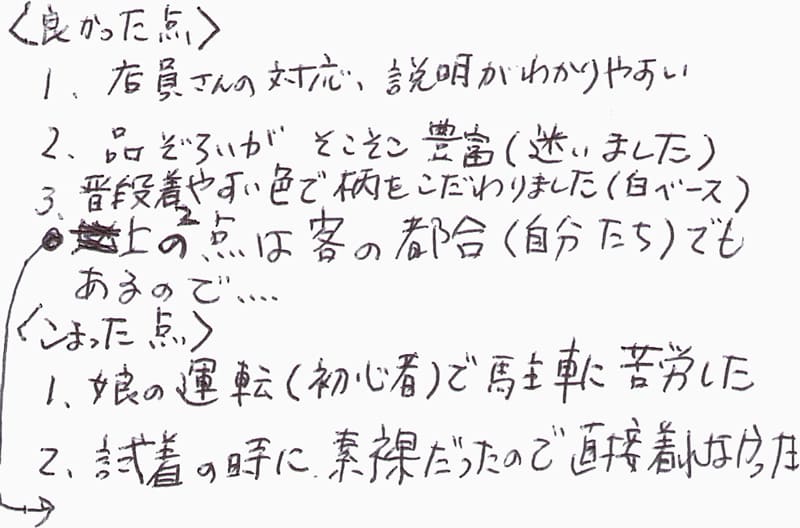 〈良かった点〉
1、店員さんの対応、説明がわかりやすい
2、品ぞろいが そこそこ豊富(迷いました)
3、普段着やすい色で柄をこだわりました(白ベース)
●上の2点は客の都合(自分たち)でも
あるので....
〈こまった点〉
1、娘の運転(初心者)で馬主車に苦労した
2、試着の時に素裸だったので直接着れなかった